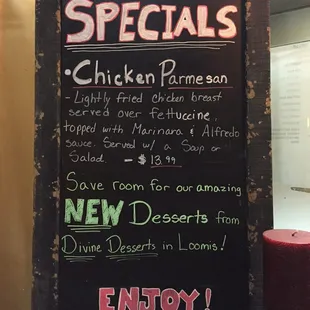 SPECIALS
• Chicken Parmesan
- Lightly fried chicken breast
served over fettuccine,
topped with Marinara & Alfredo
sauce. Served w/ a Soup or
Salad. - $13.99
Save room for our amazing
NEW Desserts from
Divine Desserts in Loomis!
ENJOY!